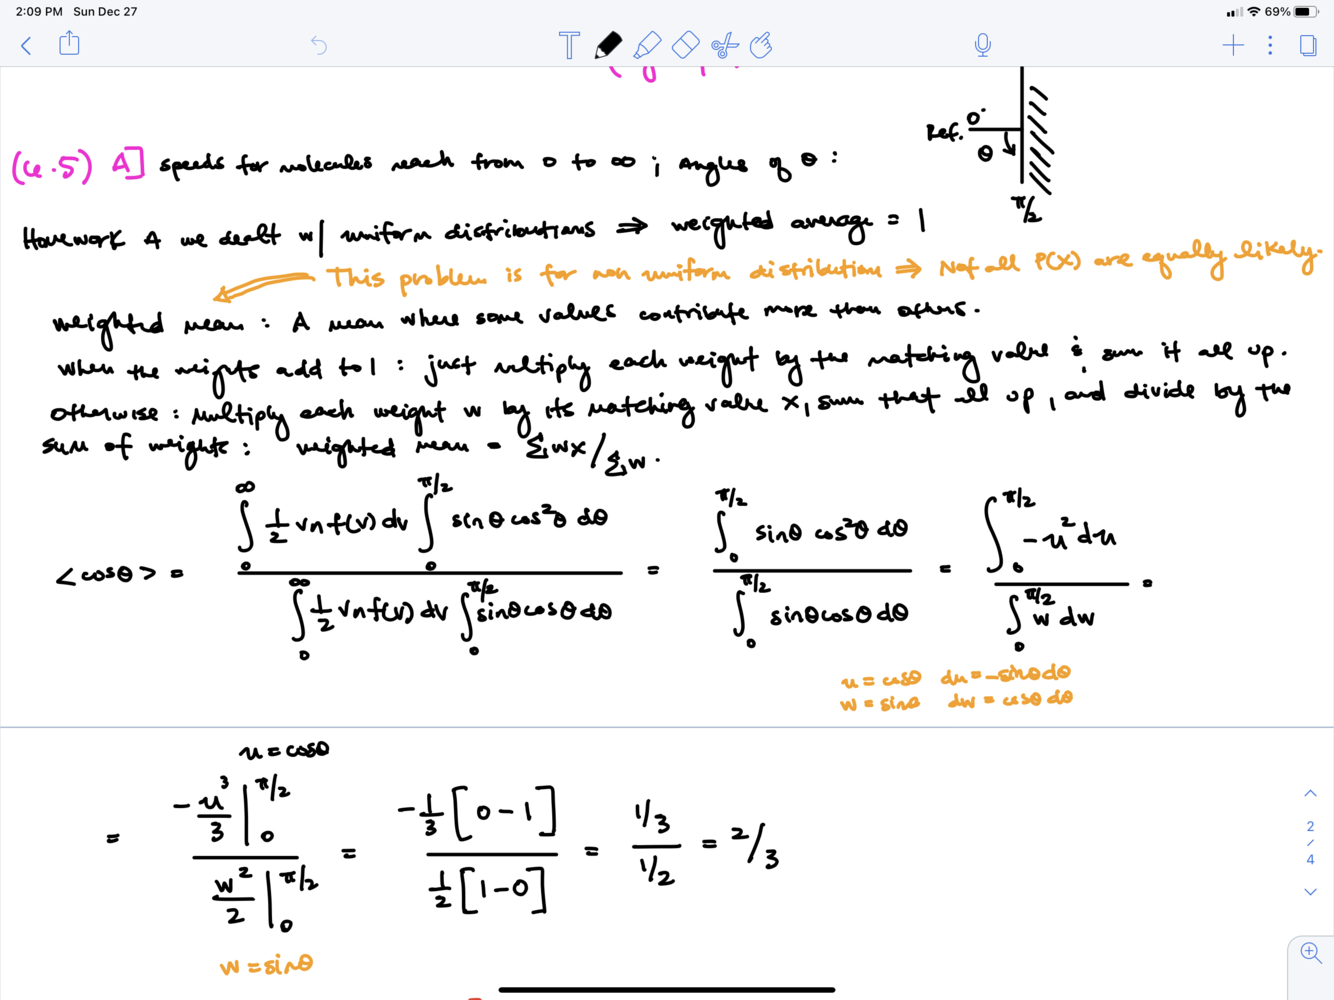 2:09 PM Sun Dec 27
69%
(6.5) A] speeds for molecules reach from 0 to ∞ ; Angles of θ :
Ref. 0°
θ
π/2
Homework A we dealt w/ uniform distributions ⇒ weighted average = 1
This problem is for non uniform distribution ⇒ Not all P(x) are equally likely.
weighted mean : A mean where some values contribute more than others.
when the weights add to 1 : just multiply each weight by the matching value & sum it all up.
otherwise : multiply each weight w by its matching value x, sum that all up, and divide by the
sum of weights : weighted mean = Σwx/Σw.
<cosθ> = ∫₀^∞ ½ v n f(v) dv ∫₀^{π/2} sinθ cos²θ dθ / ∫₀^∞ ½ v n f(v) dv ∫₀^{π/2} sinθ cosθ dθ = ∫₀^{π/2} sinθ cos²θ dθ / ∫₀^{π/2} sinθ cosθ dθ = ∫₀^{π/2} -u² du / ∫₀^{π/2} w dw =
u = cosθ du = -sinθ dθ
w = sinθ dw = cosθ dθ
u = cosθ
= -u³/3 |₀^{π/2} / w²/2 |₀^{π/2} = -1/3 [0 - 1] / 1/2 [1 - 0] = 1/3 / 1/2 = 2/3
w = sinθ
2 / 4